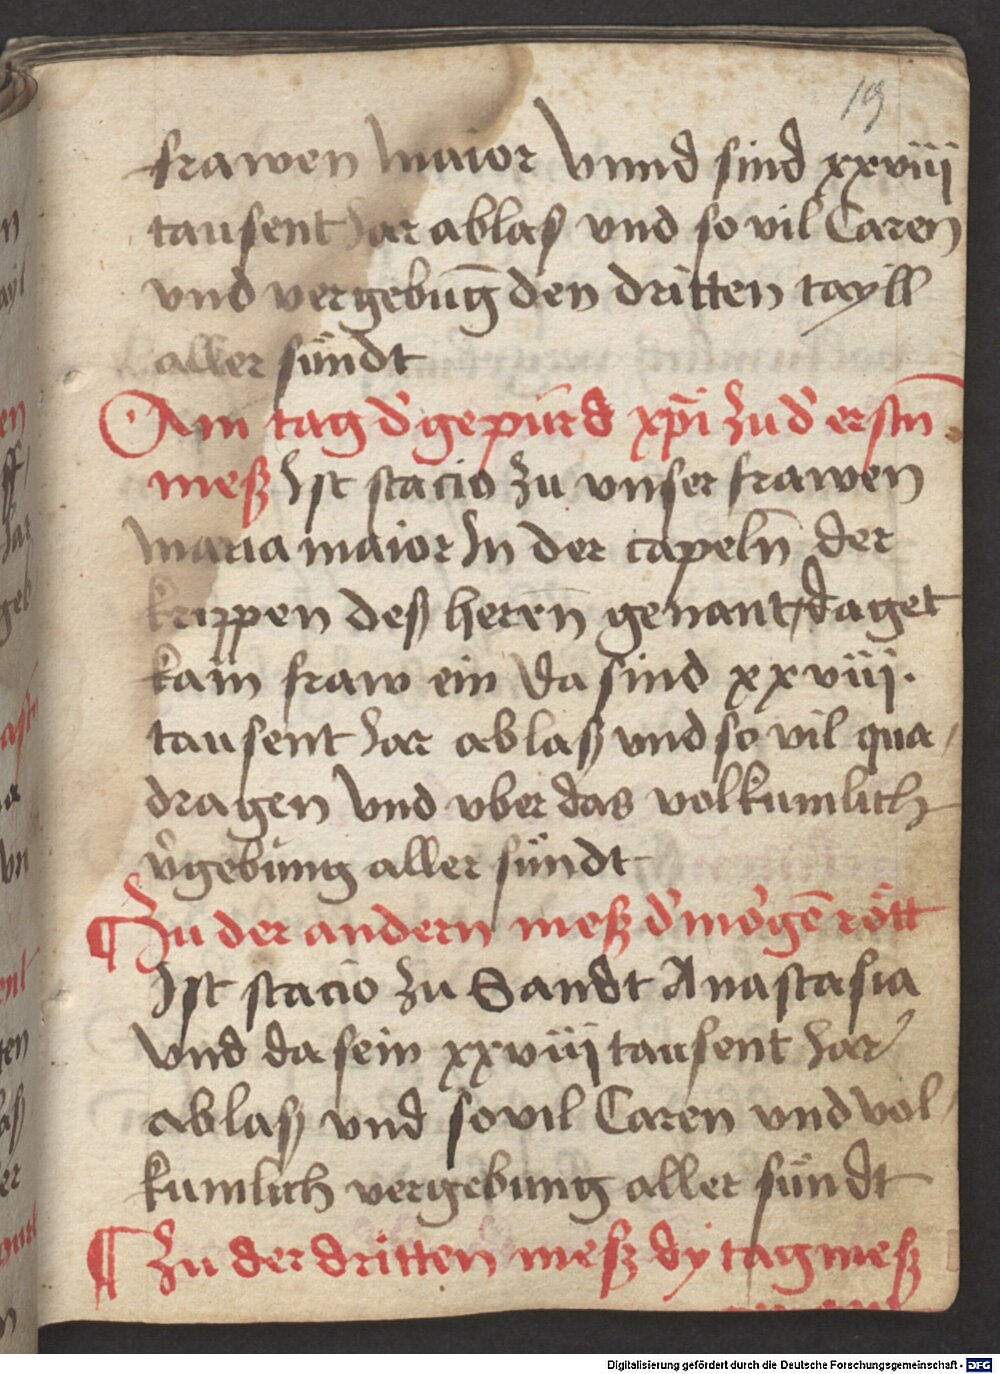 19
frawen Maior Vnnd sind xxviii
tausent Jar ablaß vnd so vil Caren
vnd vergebūg den dritten tayll
aller sündt
Am tag d' gepurd xp̄i zu d' erstn̄
meß Ist stacio zu vnser frawen
Maria maior In der capeln̄ der
krippen deß heren genant / da get
kain fraw ein Da sind xxviii.
tausent Jar ablaß vnd so vil qua/
dragen Vnd vber das volkumlich
v'gebung aller sündt
¶ Zu der andern meß d' mo'gē rött
Ist stacio zu Sandt Anastasia
Vnd da sein xxviii tausent Jar
ablaß vnd so vil Caren vnd vol/
kumlich vergebung aller sündt
¶ Zu der dritten meß dy tagmeß
Digitalisierung gefördert durch die Deutsche Forschungsgemeinschaft - DFG